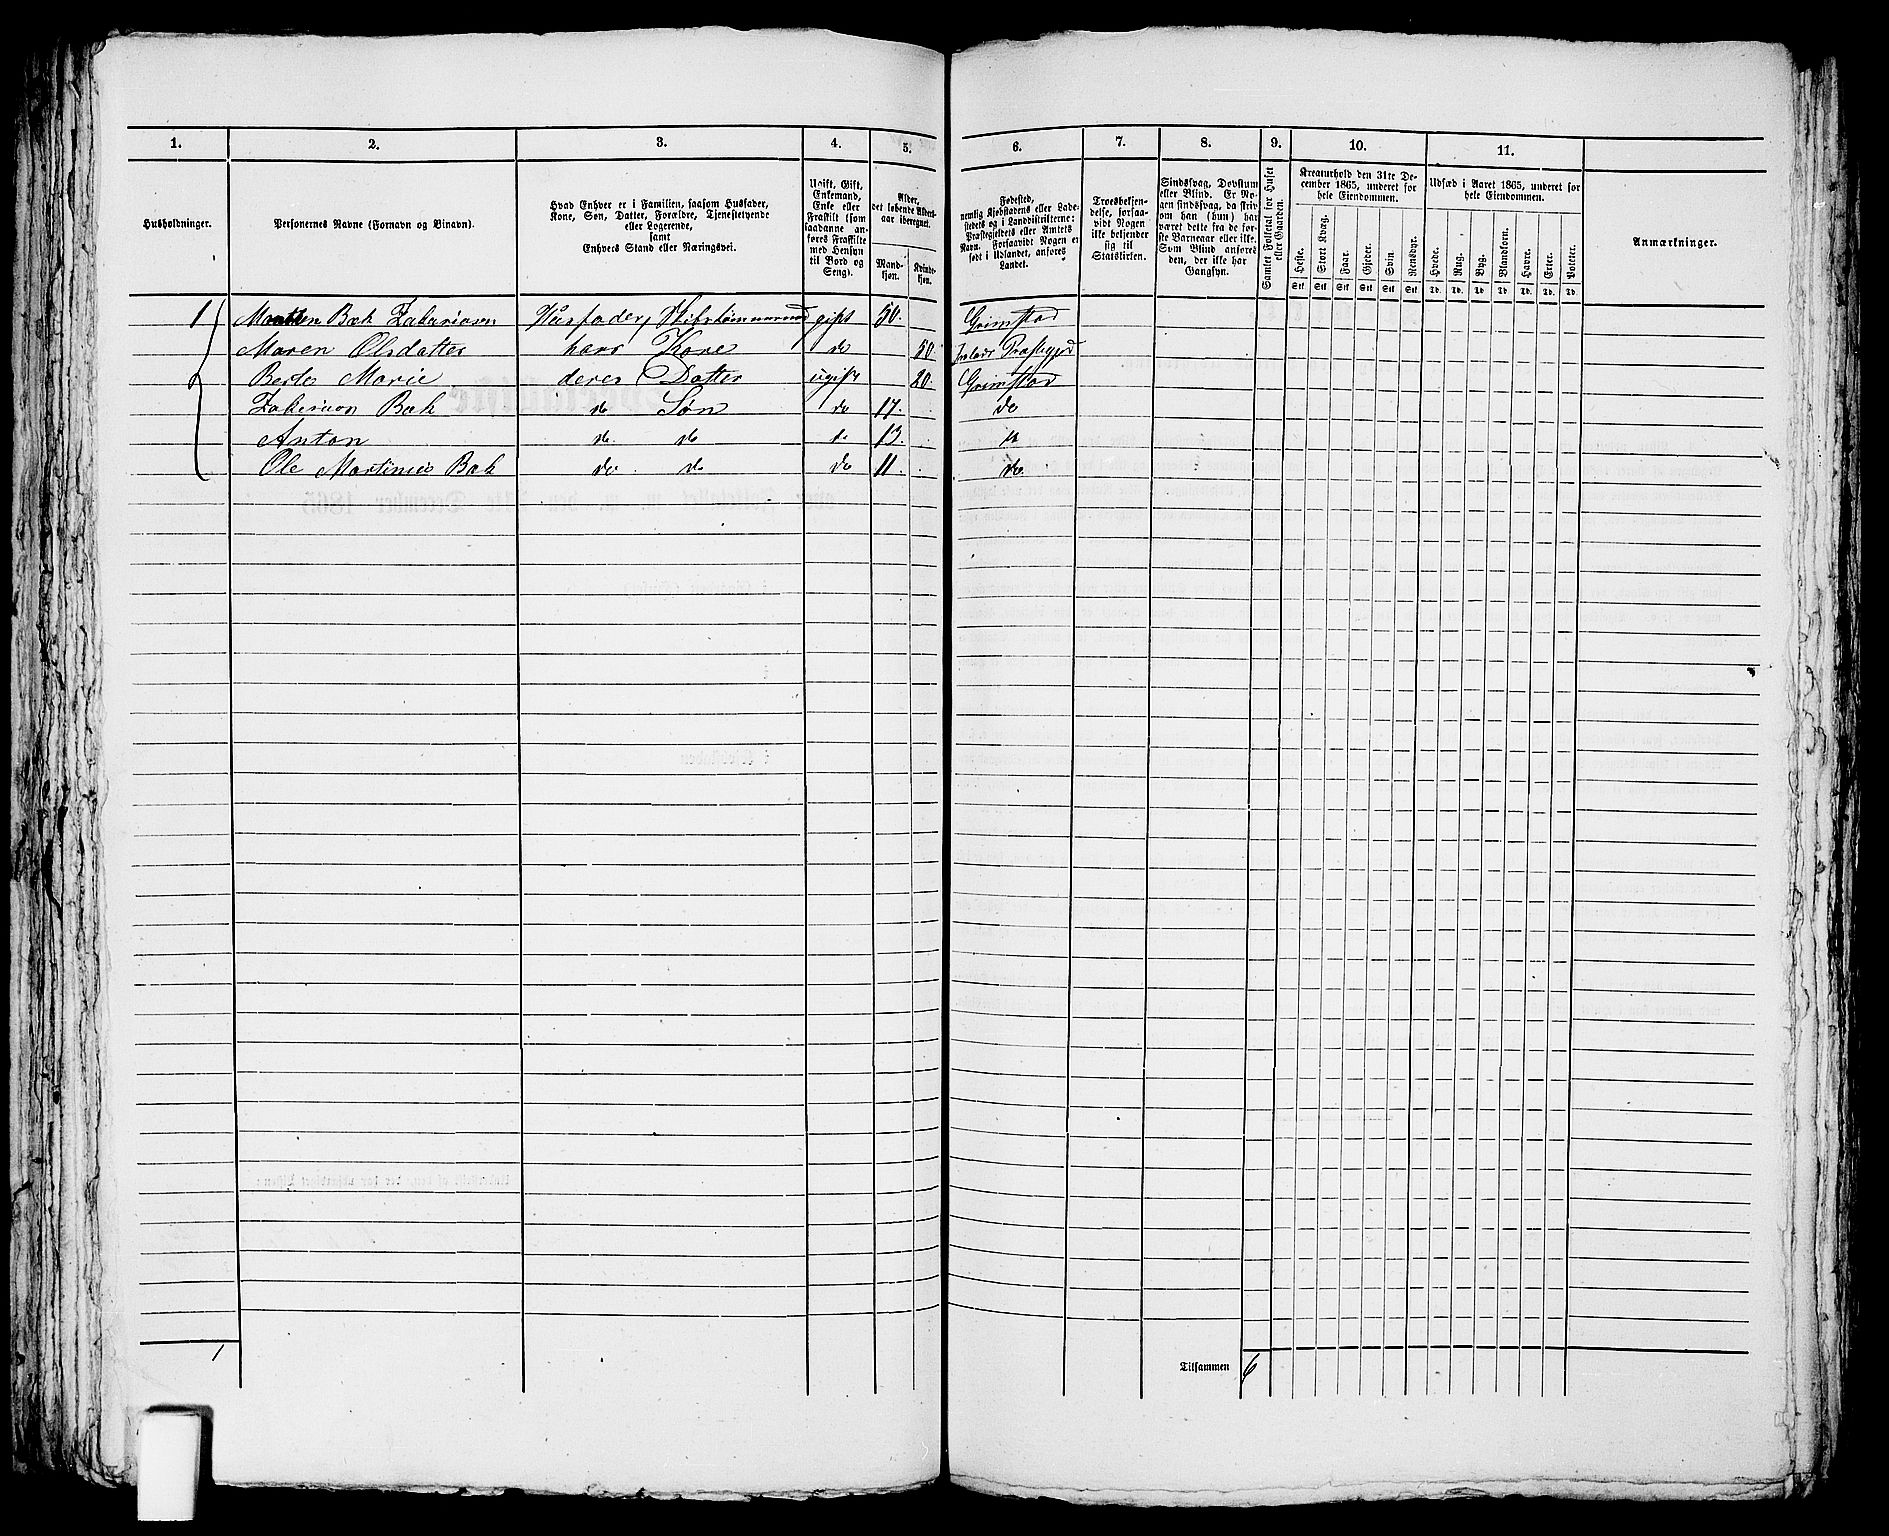 1. 2. 3. 4. 5. 6. 7. 8. 9. 10. 11.
Husholdninger.
Personernes Navne (Fornavn og Binavn).
Hvad Enhver er i Familien, saasom Husfader,
Kone, Søn, Datter, Forældre, Tjenestetyende
eller Logerende,
samt
Enhvers Stand eller Næringsvei.
Ugift, Gift,
Enkemand,
Enke eller
Fraskilt (som
saadanne an-
føres Fraskilte
med Hensyn
til Bord og
Seng).
Alder,
det løbende Alders-
aar iberegnet.
Mand-
kjøn.
Kvinde-
kjøn.
Fødested,
nemlig Kjøbstadens eller Lade-
stedets og i Landdistrikterne:
Præstegjeldets eller Amtets
Navn. Forsaavidt Nogen er
født i Udlandet, anføres
Landet.
Troesbekjen-
delse, forsaa-
vidt Nogen
ikke bekjender
sig til
Statskirken.
Sindssvag, Døvstum
eller Blind. Er No-
gen sindssvag, da skriv
om han (hun) har
været dette fra de før-
ste Barneaar eller ikke.
Som Blind anføres
den, der ikke har
Gangsyn.
Samlet Folketal for Huset
eller Gaarden.
Kreaturhold den 31te De-
cember 1865, underet for
hele Eiendommen.
Heste. Stort Kvæg. Faar. Gjeder. Svin. Rensdyr.
Stk Stk Stk Stk Stk Stk
Udsæd i Aaret 1865, underet for
hele Eiendommen.
Hvede. Rug. Byg. Blandkorn. Havre. Erter. Poteter.
Td. Td. Td. Td. Td. Td. Td.
Anmærkninger.
1 Bæk Zakariasen Husfader, gift 50. Grimstad
Maren Olsdatter hans Kone do 50. Præstegjeld
Berte Marie deres Datter ugift 20. Grimstad
Bæk do Søn do 17. do
Anton do do do 13. do
Ole Martinius Bæk do do do 11. do
1
Tilsammen 6